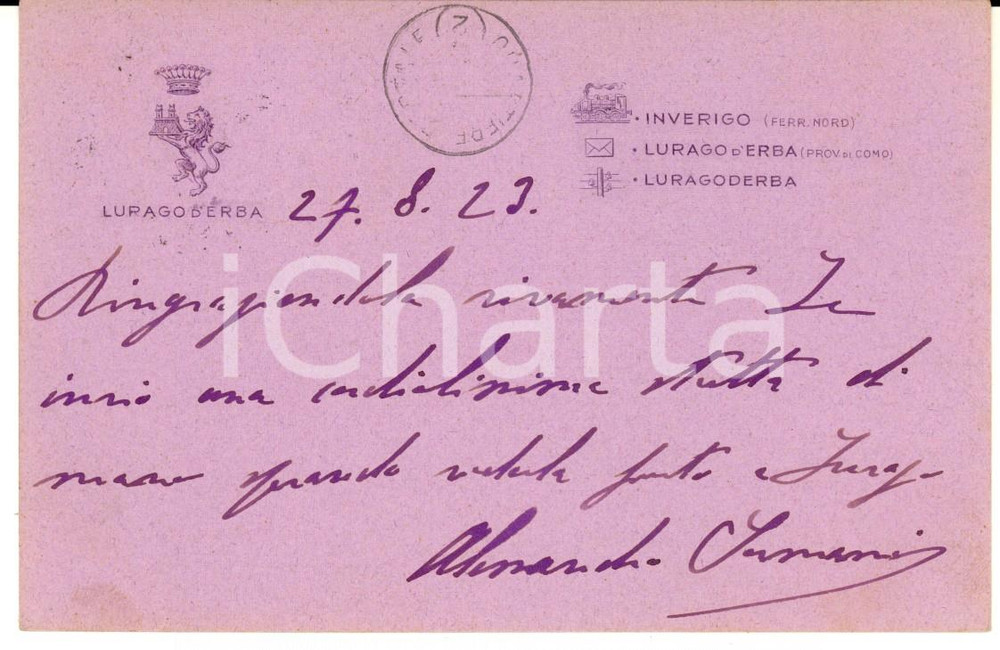 INVERIGO (FERR. NORD)
LURAGO D'ERBA (PROV. DI COMO)
LURAGODERBA
LURAGO D'ERBA
27. 8. 23.
Ringraziandola vivamente Le
invio una cordialissima stretta di
mano sperando vederla presto a Lurago
Alessandro
iCharta